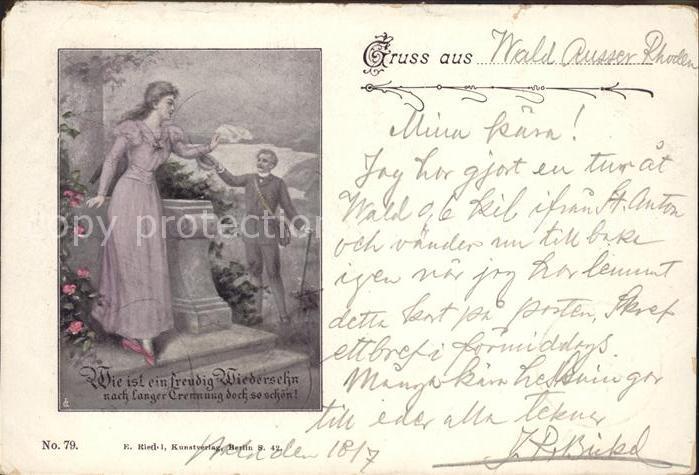 Gruss aus Wald Ausser Rhoden
Mina kära!
Jag har gjort en tur åt
Wald 96 kil ifrån St. Anton
och vänder nu tillbaka
igen när jag har lemnat
detta kort på posten, Skref
ett bref i förmiddags.
Många kära helsningar
till eder alla
Wie ist ein freudig Wiedersehn
nach langer Trennung doch so schön!
No. 79.
Kunstverlag, Berlin S. 42.
Wald den 18/7
copy protection